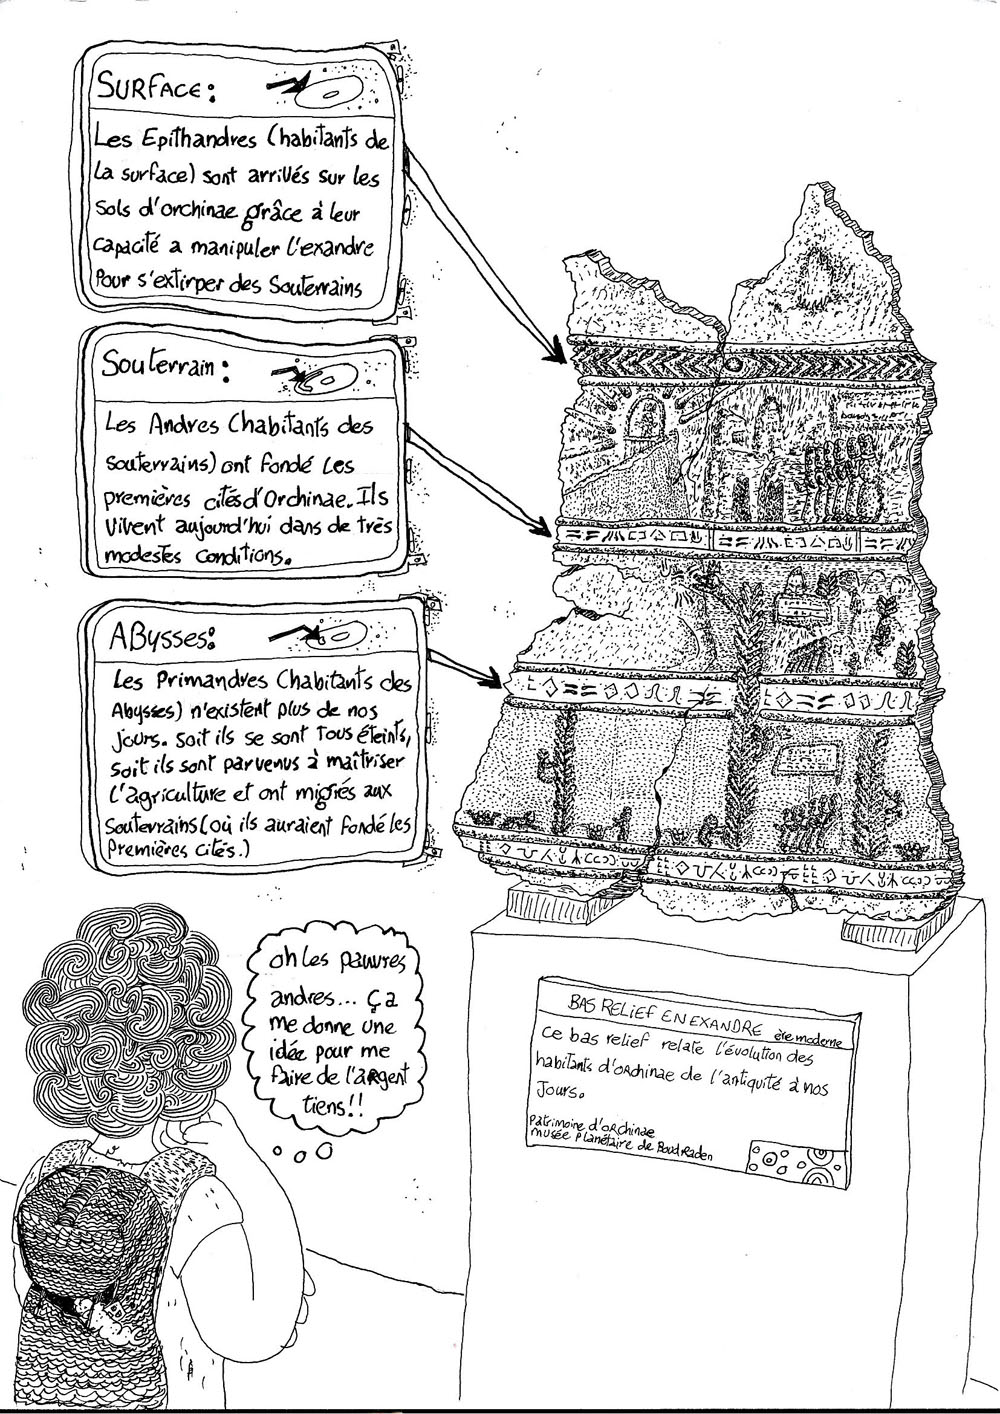 SURFACE:
Les Epithandres (habitants de
la surface) sont arrivés sur les
sols d'orchinae grâce à leur
capacité a manipuler l'exandre
Pour s'extirper des Souterrains
Souterrain:
Les Andres (habitants des
souterrains) ont fondé les
premières cités d'Orchinae. Ils
vivent aujourd'hui dans de très
modestes conditions.
ABysses:
Les Primandres (habitants des
Abysses) n'existent plus de nos
jours. soit ils se sont tous éteints,
soit ils sont parvenus à maîtriser
l'agriculture et ont migrés aux
Souterrains (où ils auraient fondé les
Premières cités.)
oh les pauvres
andres... ça
me donne une
idée pour me
faire de l'argent
tiens!!
BAS RELIEF EN EXANDRE ère moderne
Ce bas relief relate l'évolution des
habitants d'orchinae de l'antiquité à nos
Jours.
Patrimoine d'orchinae
musée Planétaire de BoudRaden